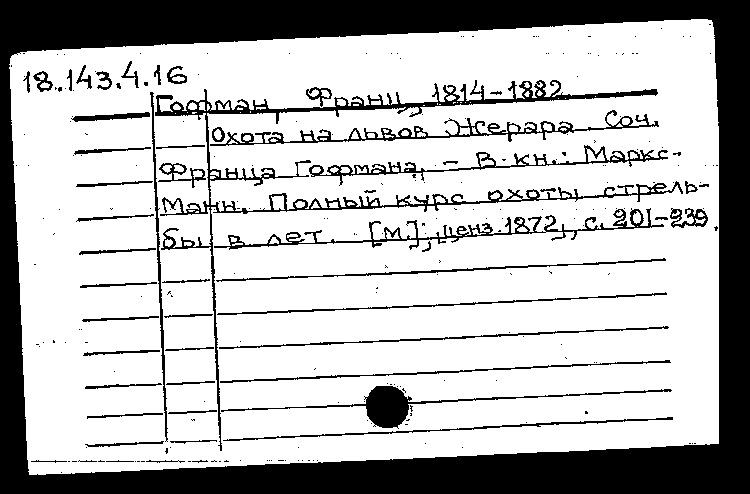 18.143.4.16
Гофман, Франц, 1814-1882
Охота на львов Жерара. Соч.
Франца Гофмана, - В кн.: Маркс-
манн. Полный курс охоты, стрель-
бы в лет. [М.], ценз. 1872, с. 201-239.